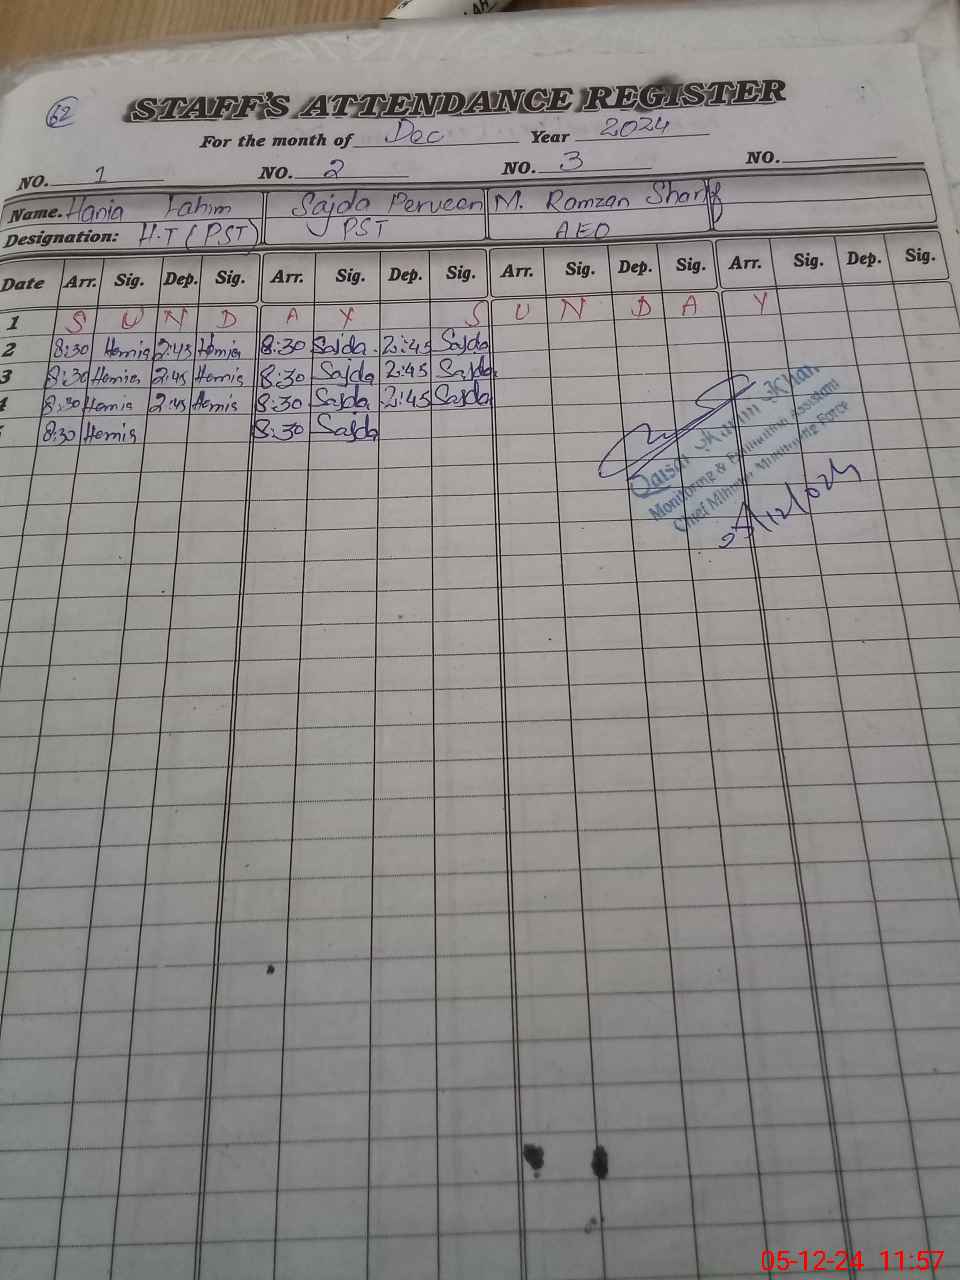 62
STAFF'S ATTENDANCE REGISTER
For the month of Dec Year 2024
NO. 1 NO. 2 NO. 3 NO.
Name. Hania Fahim Sajda Perveen M. Ramzan Sharif
Designation: H.T (PST) PST AEO
Date Arr. Sig. Dep. Sig. Arr. Sig. Dep. Sig. Arr. Sig. Dep. Sig. Arr. Sig. Dep. Sig.
1 S U N D A Y S U N D A Y
2 8:30 2:45 8:30 Sajda 2:45 Sajda
3 8:30 2:45 8:30 Sajda 2:45 Sajda
8:30 2:45 8:30 Sajda 2:45 Sajda
8:30 8:30 Sajda
Khan
Monitoring & Evaluation Assistant
Chief Minister Monitoring Force
05-12-24 11:57